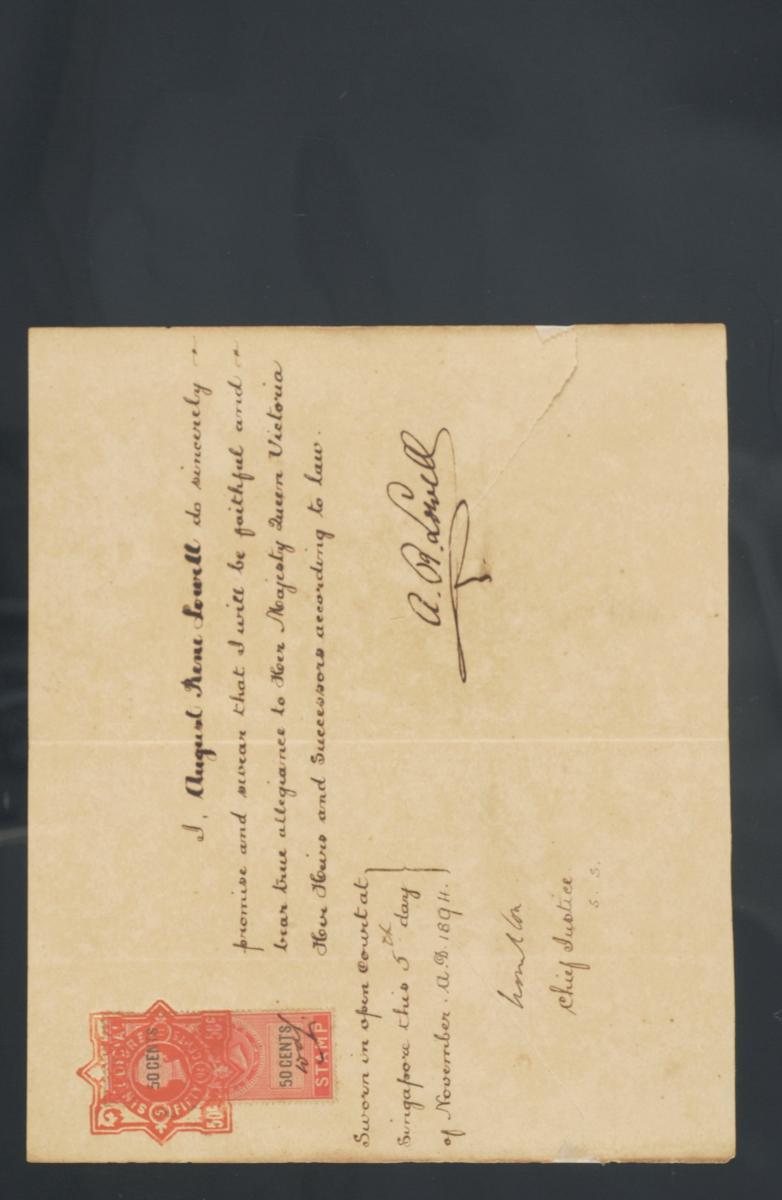 50 CENTS
50 CENTS
STAMP
I, August Rene Lowell do sincerely
promise and swear that I will be faithful and
bear true allegiance to Her Majesty Queen Victoria
Her Heirs and Successors according to law.
Sworn in open Court at
Singapore this 5th day
of November. A.D. 1894.
A. R. Lowell
Chief Justice
S. S.